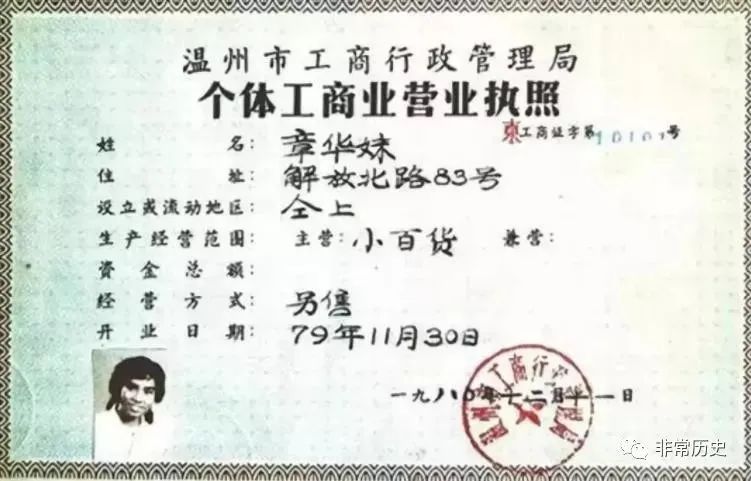 温州市工商行政管理局
个体工商业营业执照
東工商证字第10101号
姓名：章华妹
住址：解放北路83号
设立或流动地区：仝上
生产经营范围：主营：小百货 兼营：
资金总额：
经营方式：另售
开业日期：79年11月30日
一九八〇年十二月十一日
温州市工商行政管理局
非常历史